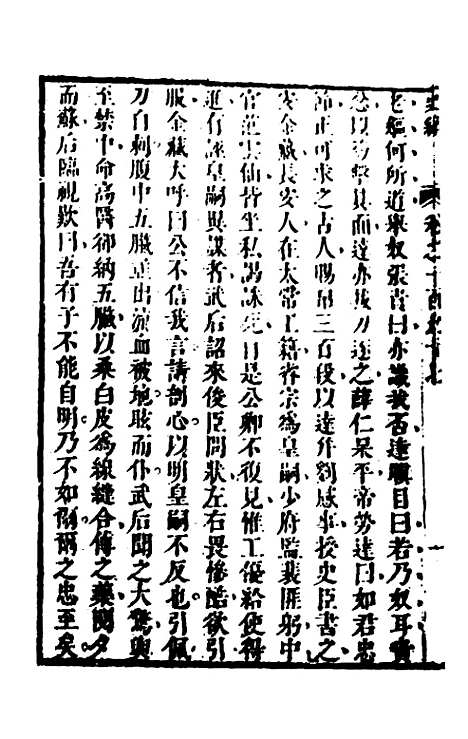 老嫗何所道舉奴張貴曰亦識我否達瞋目曰若乃奴耳貴
忿以笏擊其面達亦拔刀逐之薛仁杲平帝勞達曰如君忠
節正可求之古人賜帛三百段以達幷劉感事授史臣書之
安金藏長安人在太常工籍睿宗為皇嗣少府監裴匪躬中
官范雲仙皆坐私謁誅是日是公卿不復見惟工優給使得
進有誣皇嗣異謀者武后詔來俊臣問狀左右畏慘酷欲引
服金藏大呼曰公不信我言請剖心以明皇嗣不反也引佩
刀自剚腹中五臟並出流血被地眩而仆武后聞之大驚輿
至禁中命高醫卻納五臟以桑白皮為線縫合傅之藥閱夕
而蘇后臨視歎曰吾有子不能自明乃不如爾之忠至矣